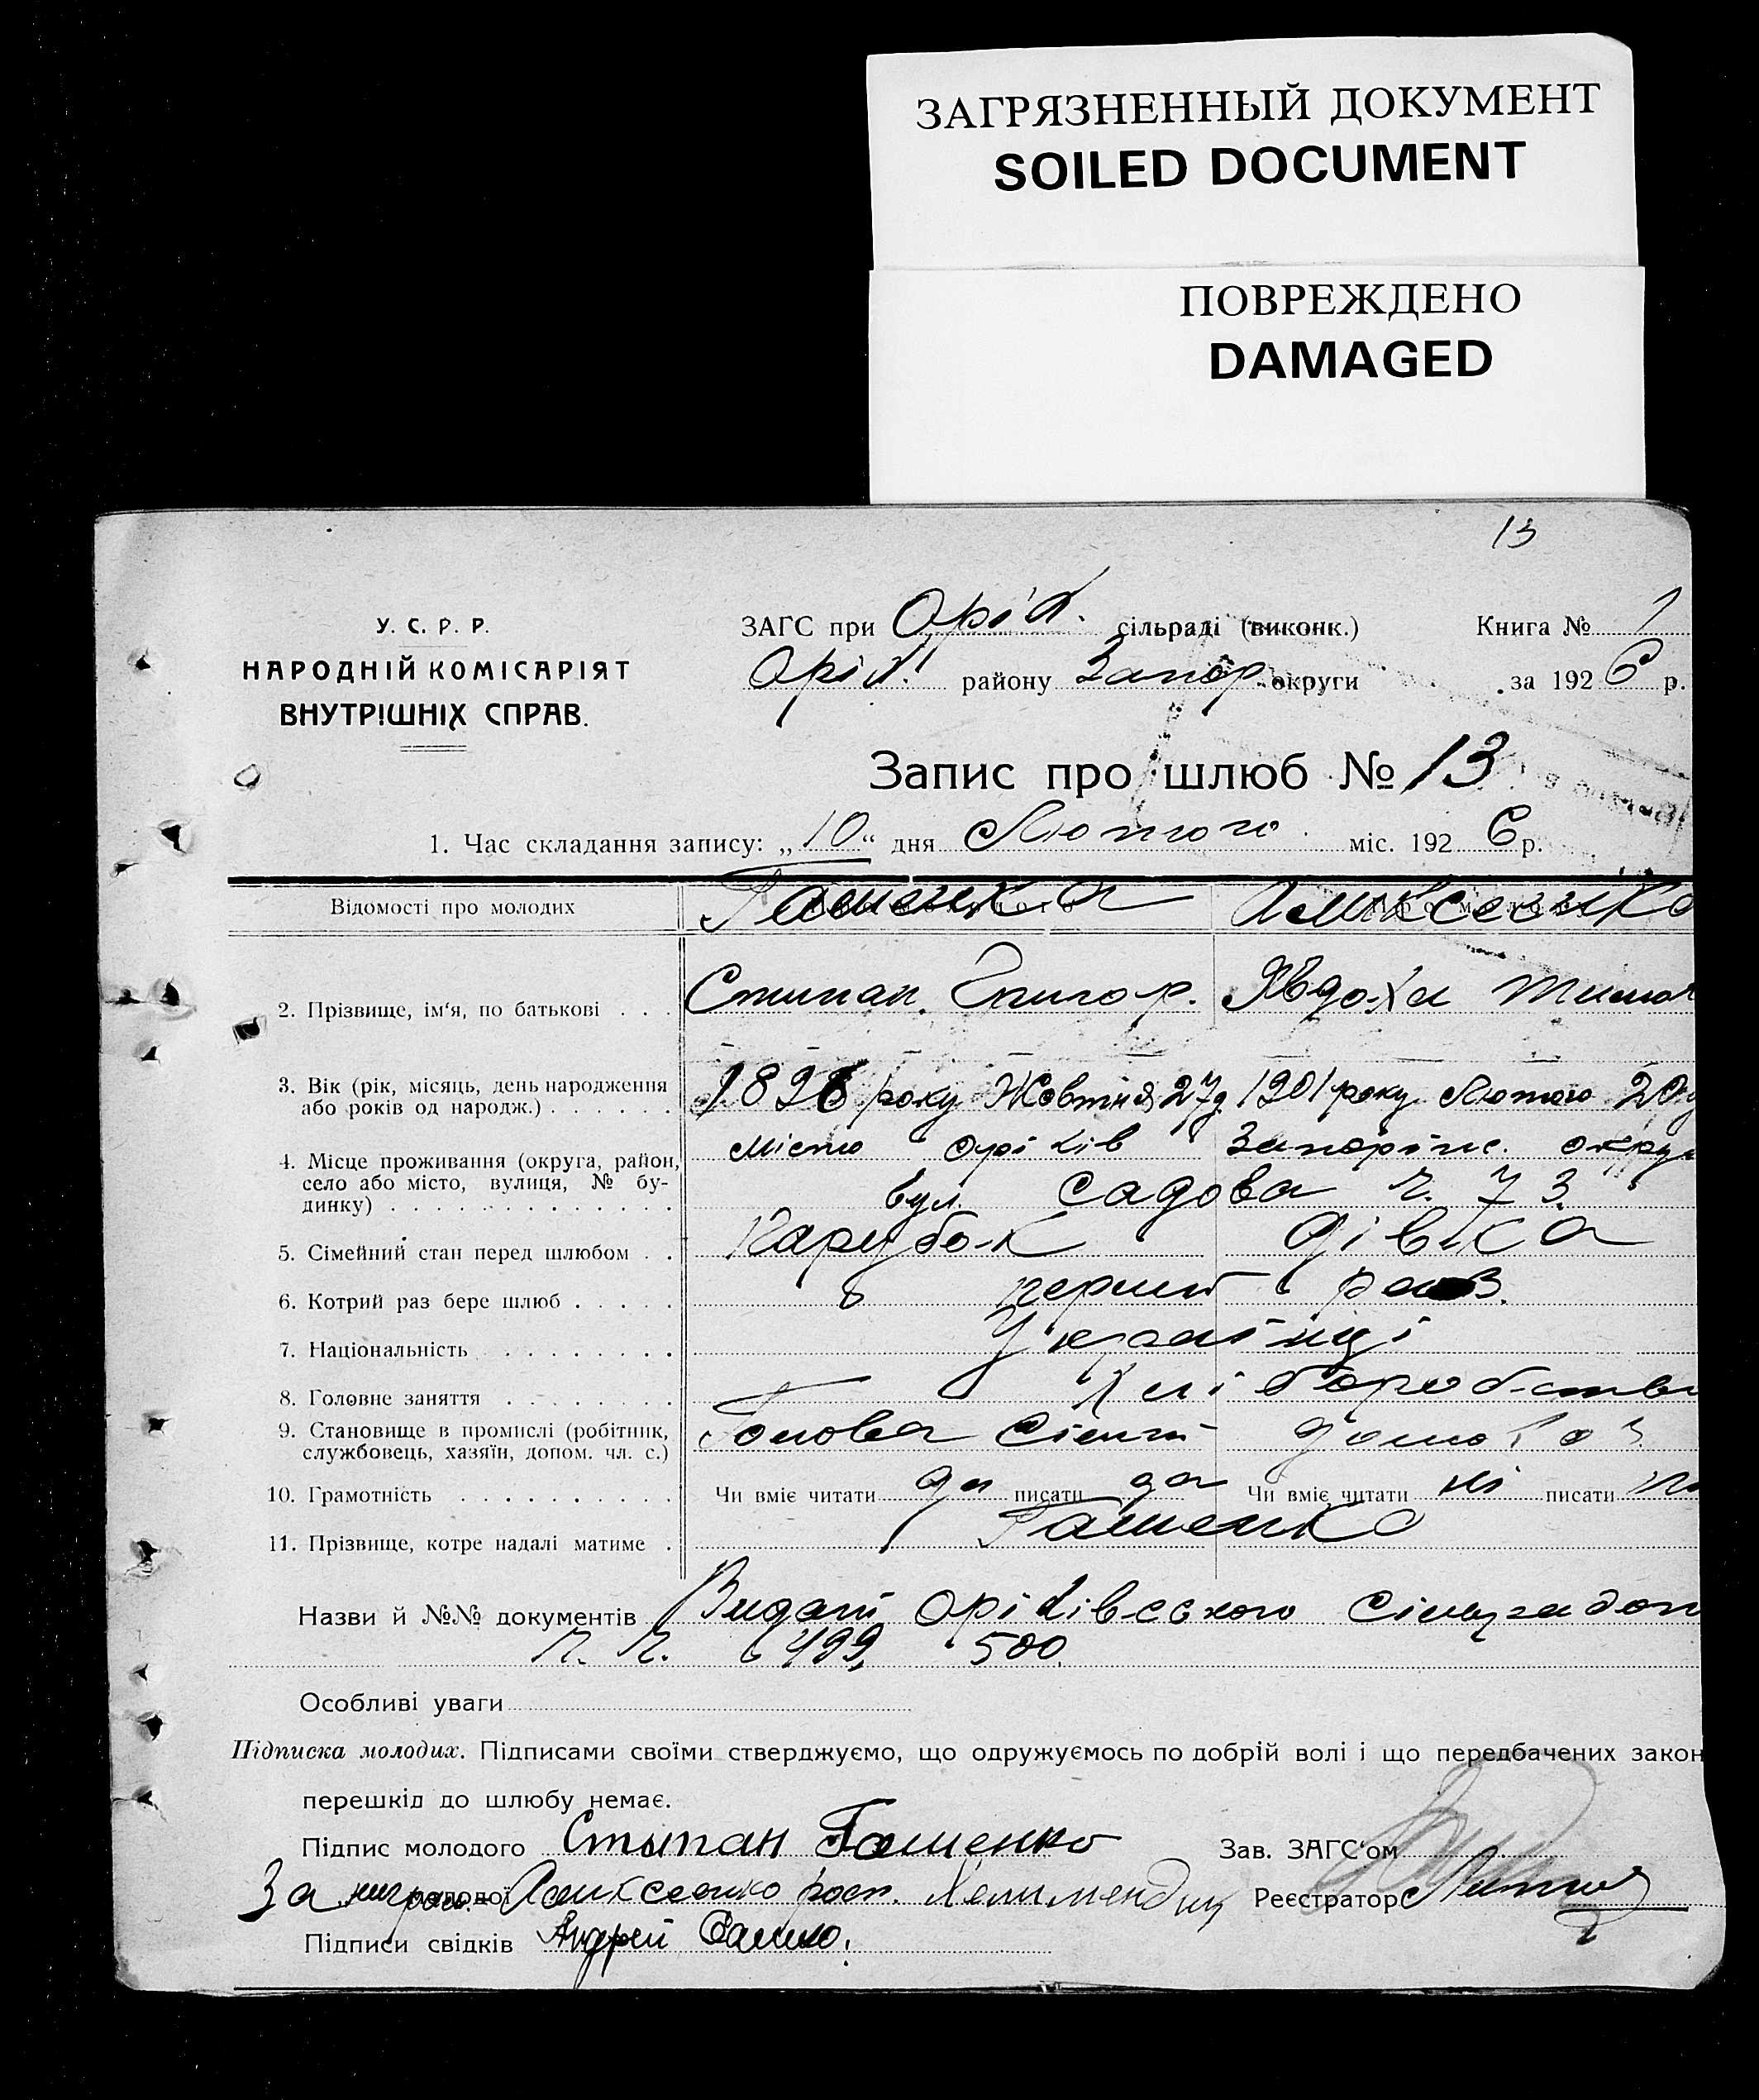 ЗАГРЯЗНЕННЫЙ ДОКУМЕНТ
SOILED DOCUMENT
ПОВРЕЖДЕНО
DAMAGED
13
У. С. Р. Р.
НАРОДНІЙ КОМІСАРІЯТ
ВНУТРІШНІХ СПРАВ.
ЗАГС при Оріх. сільраді (виконк.) Книга № 1
Оріх. району Запор. округи за 1926 р.
Запис про шлюб № 13
1. Час складання запису: „10“ дня Лютого міс. 1926 р.
Відомості про молодих
2. Прізвище, ім‘я, по батькові . . . Степан Григор. Явдоха
3. Вік (рік, місяць, день народження або років од народж.) . . . . . . року Жовтня 27д 1901 року Лютого 20
4. Місце проживання (округа, район, село або місто, вулиця, № будинку) . . . . . . . . . . . . . місто Оріхів
вул. Садова ч. 73.
5. Сімейний стан перед шлюбом . . Парубок дівка
6. Котрий раз бере шлюб . . . . . перший раз.
7. Національність . . . . . . . . Українці
8. Головне заняття . . . . . . . .
9. Становище в промислі (робітник, службовець, хазяїн, допом. чл. с.) Голова
10. Грамотність . . . . . . . . . . Чи вміє читати да писати да Чи вміє читати ні писати
11. Прізвище, котре надалі матиме . Гашенко
Назви й №№ документів Видані Оріхівського
ч. ч. 499, 500.
Особливі уваги
Підписка молодих. Підписами своїми стверджуємо, що одружуємось по добрій волі і що передбачених закон
перешкід до шлюбу немає.
Підпис молодого Степан Гашенко Зав. ЗАГС‘ом
За молодої Реєстратор
Підписи свідків Андрей